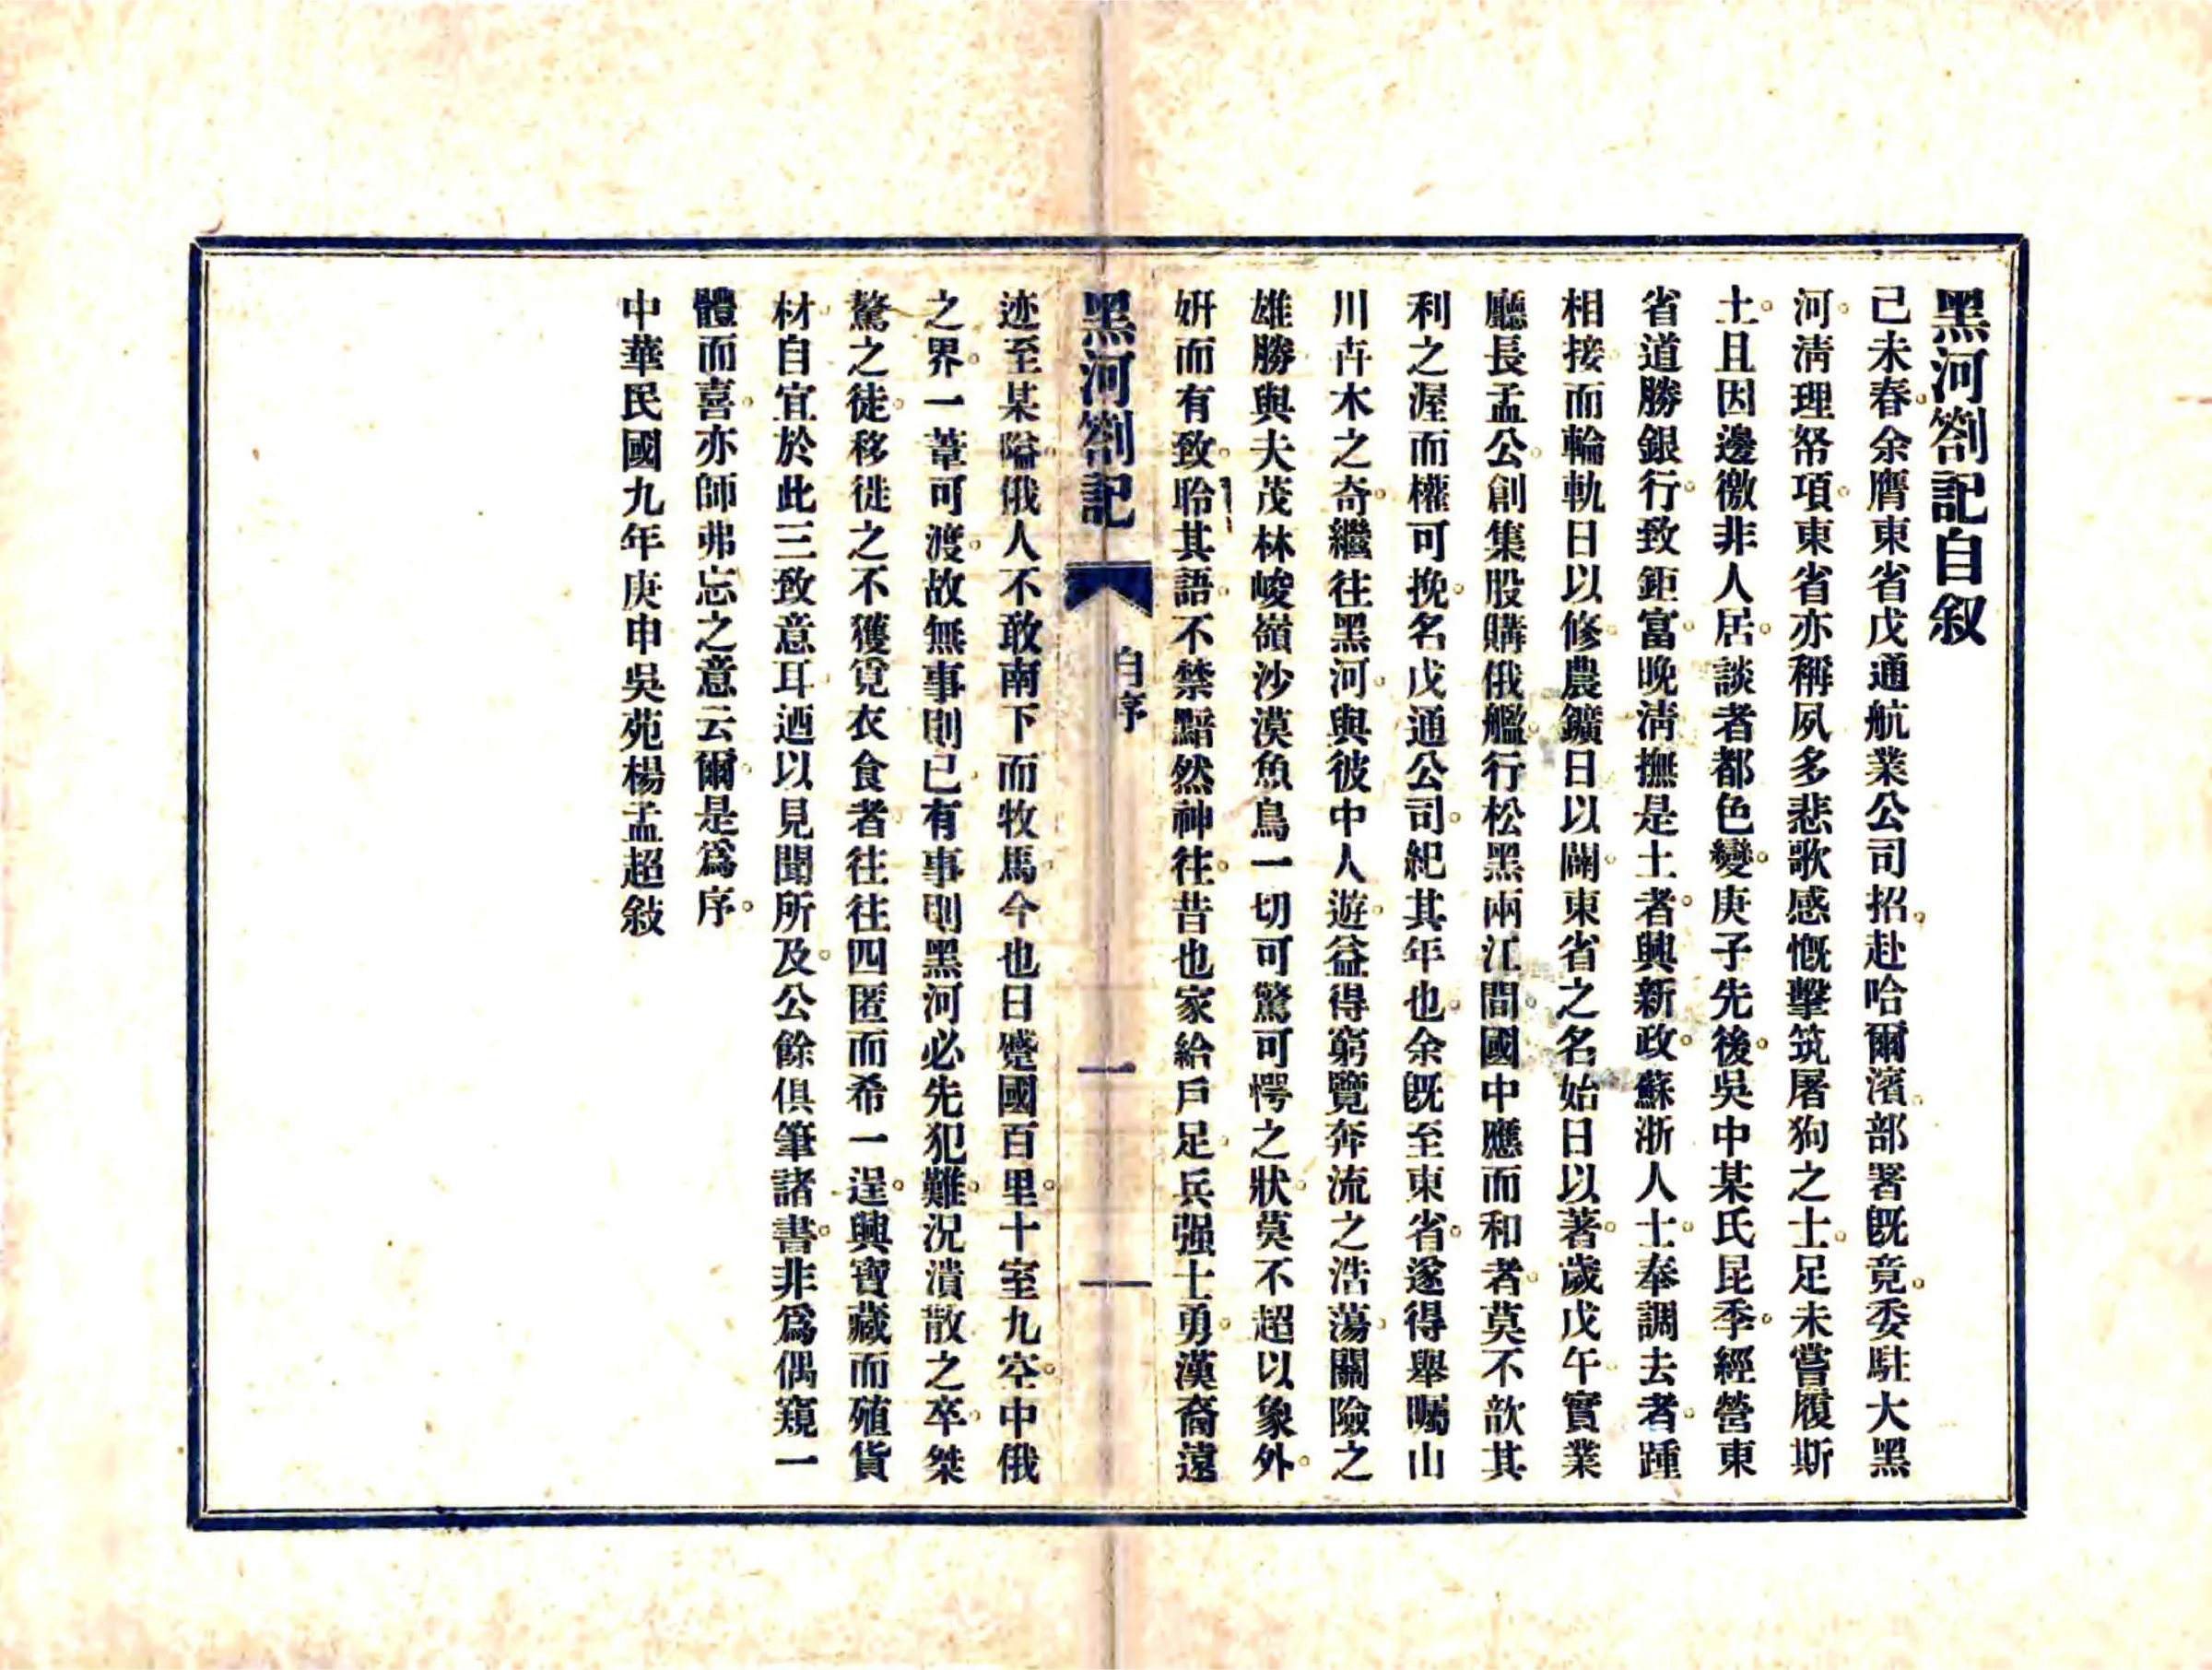 黑河劄記自叙
己未春余膺東省戊通航業公司招赴哈爾濱部署旣竟委駐大黑
河淸理帑項東省亦稱夙多悲歌感慨擊筑屠狗之士足未嘗履斯
土且因邊徼非人居談者都色變庚子先後吳中某氏昆季經營東
省道勝銀行致鉅富晚淸撫是土者興新政蘇浙人士奉調去者踵
相接而輪軌日以修農鑛日以闢東省之名始日以著歲戊午實業
廳長孟公創集股購俄艦行松黑兩江間國中應而和者莫不歆其
利之渥而權可挽名戊通公司紀其年也余旣至東省遂得舉矚山
川卉木之奇繼往黑河與彼中人遊益得窮覽奔流之浩蕩關險之
雄勝與夫茂林峻嶺沙漠魚鳥一切可驚可愕之狀莫不超以象外
妍而有致聆其語不禁黯然神往昔也家給戶足兵强士勇漢裔遠
黑河劄記
自序
一
迹至某隘俄人不敢南下而牧馬今也日蹙國百里十室九空中俄
之界一葦可渡故無事則已有事則黑河必先犯難況潰散之卒桀
驁之徒移徙之不獲覓衣食者往往四匿而希一逞興寶藏而殖貨
材自宜於此三致意耳迺以見聞所及公餘俱筆諸書非爲偶窺一
體而喜亦師弗忘之意云爾是爲序
中華民國九年庚申吳苑楊孟超敍